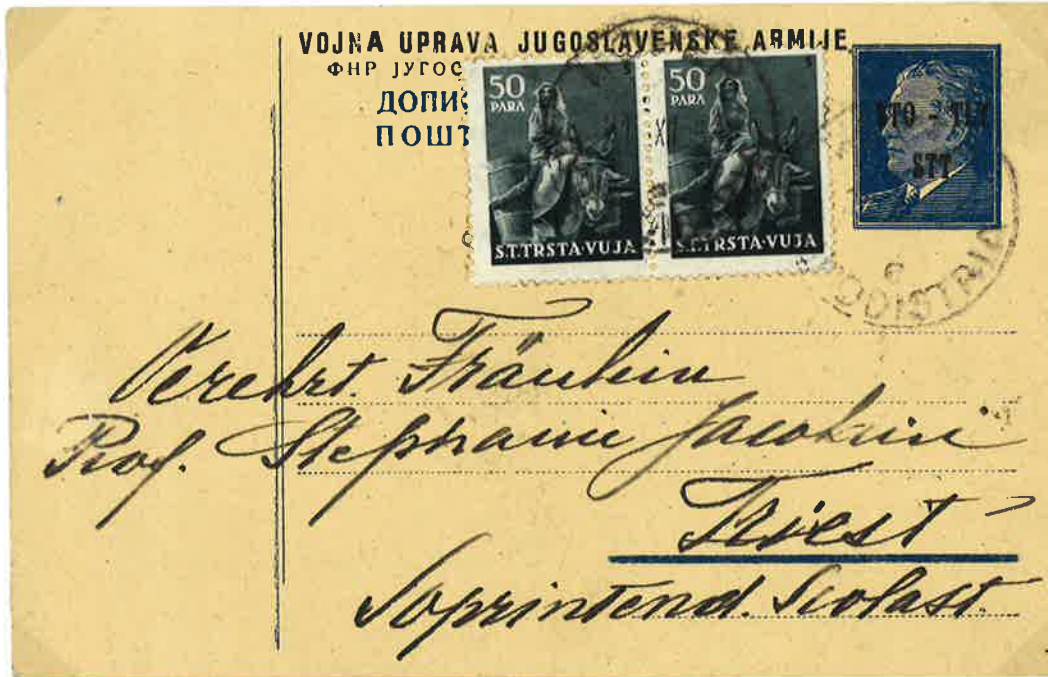 VOJNA UPRAVA JUGOSLAVENSKE ARMIJE
ФНР ЈУГОС
ДОПИС
ПОШТ
50
PARA
S.T.TRSTA-VUJA
50
PARA
S.T.TRSTA-VUJA
STO - TLT
STT
6
Verehrt. Fräulein
Prof. Stephanie
Triest
Soprintend. Scolast.